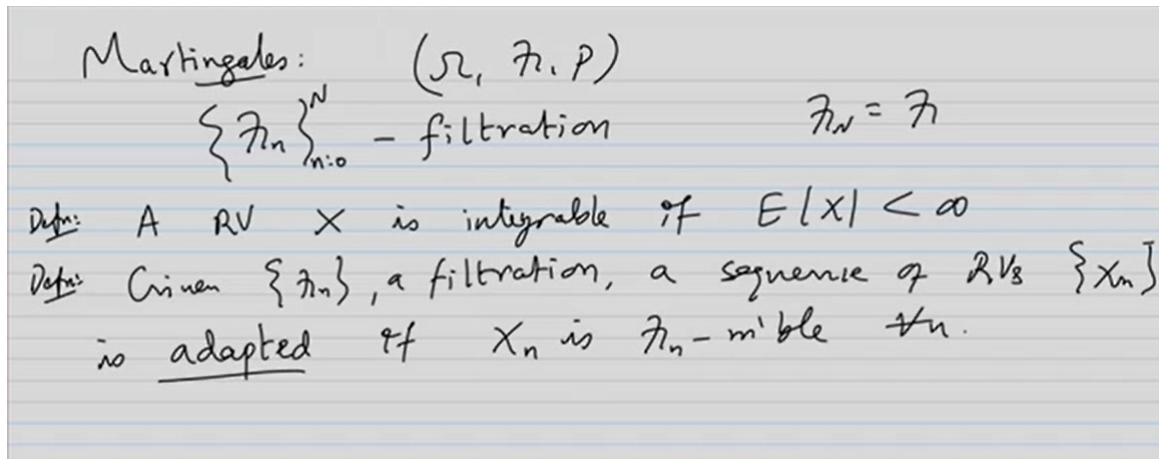 Martingales: (Ω, ℱ, P)
{ℱₙ}ᴺₙ₌₀ - filtration ℱ_N = ℱ
Defn: A RV X is integrable if E|X| < ∞
Defn: Given {ℱₙ}, a filtration, a sequence of RVs {Xₙ}
is adapted if Xₙ is ℱₙ-m'ble ∀n.